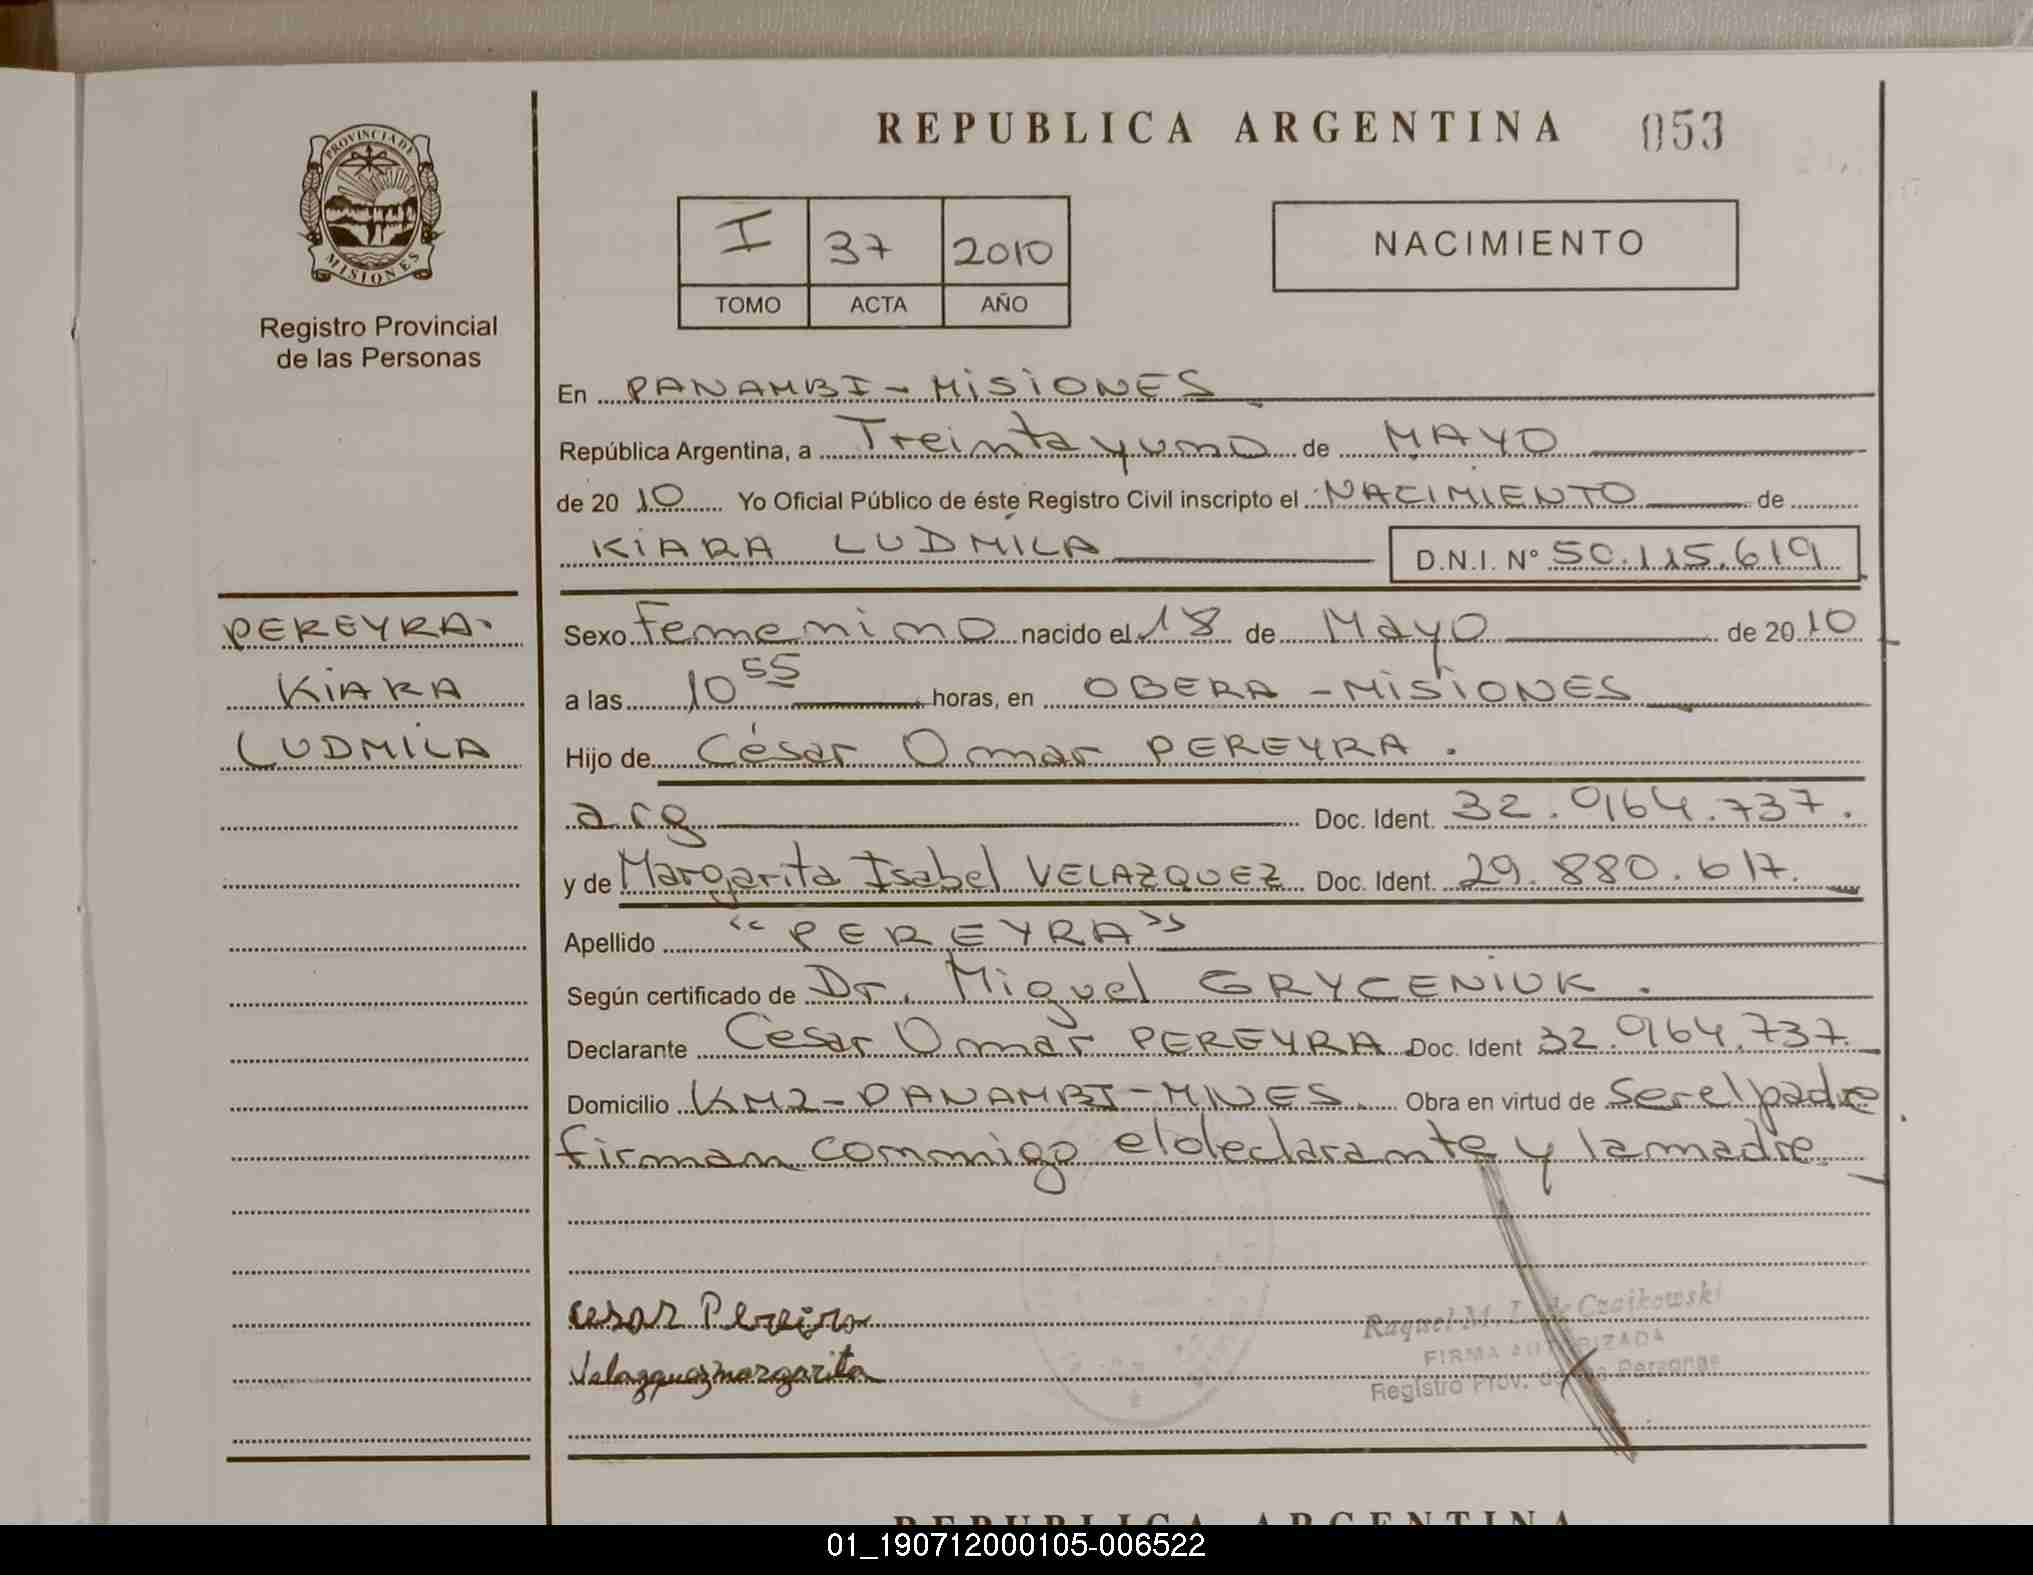 REPUBLICA ARGENTINA 053
PROVINCIA DE
MISIONES
Registro Provincial
de las Personas
I 37 2010
TOMO ACTA AÑO
NACIMIENTO
En PANAMBI - MISIONES
República Argentina, a Treinta y uno de MAYO
de 20 10 Yo Oficial Público de éste Registro Civil inscripto el NACIMIENTO de
KIARA LUDMILA D.N.I. Nº 50.115.619
PEREYRA
KIARA
LUDMILA
Sexo Femenino nacido el 18 de Mayo de 20 10
a las 10 55 horas, en OBERA - MISIONES
Hijo de César Omar PEREYRA.
arg Doc. Ident. 32.964.737.
y de Margarita Isabel VELAZQUEZ Doc. Ident. 29.880.617.
Apellido "PEREYRA"
Según certificado de Dr. Miguel GRYCENIUK.
Declarante César Omar PEREYRA Doc. Ident 32.964.737.
Domicilio KM2 - PANAMBI - MNES. Obra en virtud de ser el padre
firman conmigo el declarante y la madre.
cesar Pereira
Velazquez margarita
Raquel M. L. de Czajkowski
FIRMA AUTORIZADA
Registro Prov. de las Personas
REPUBLICA ARGENTINA
01_190712000105-006522